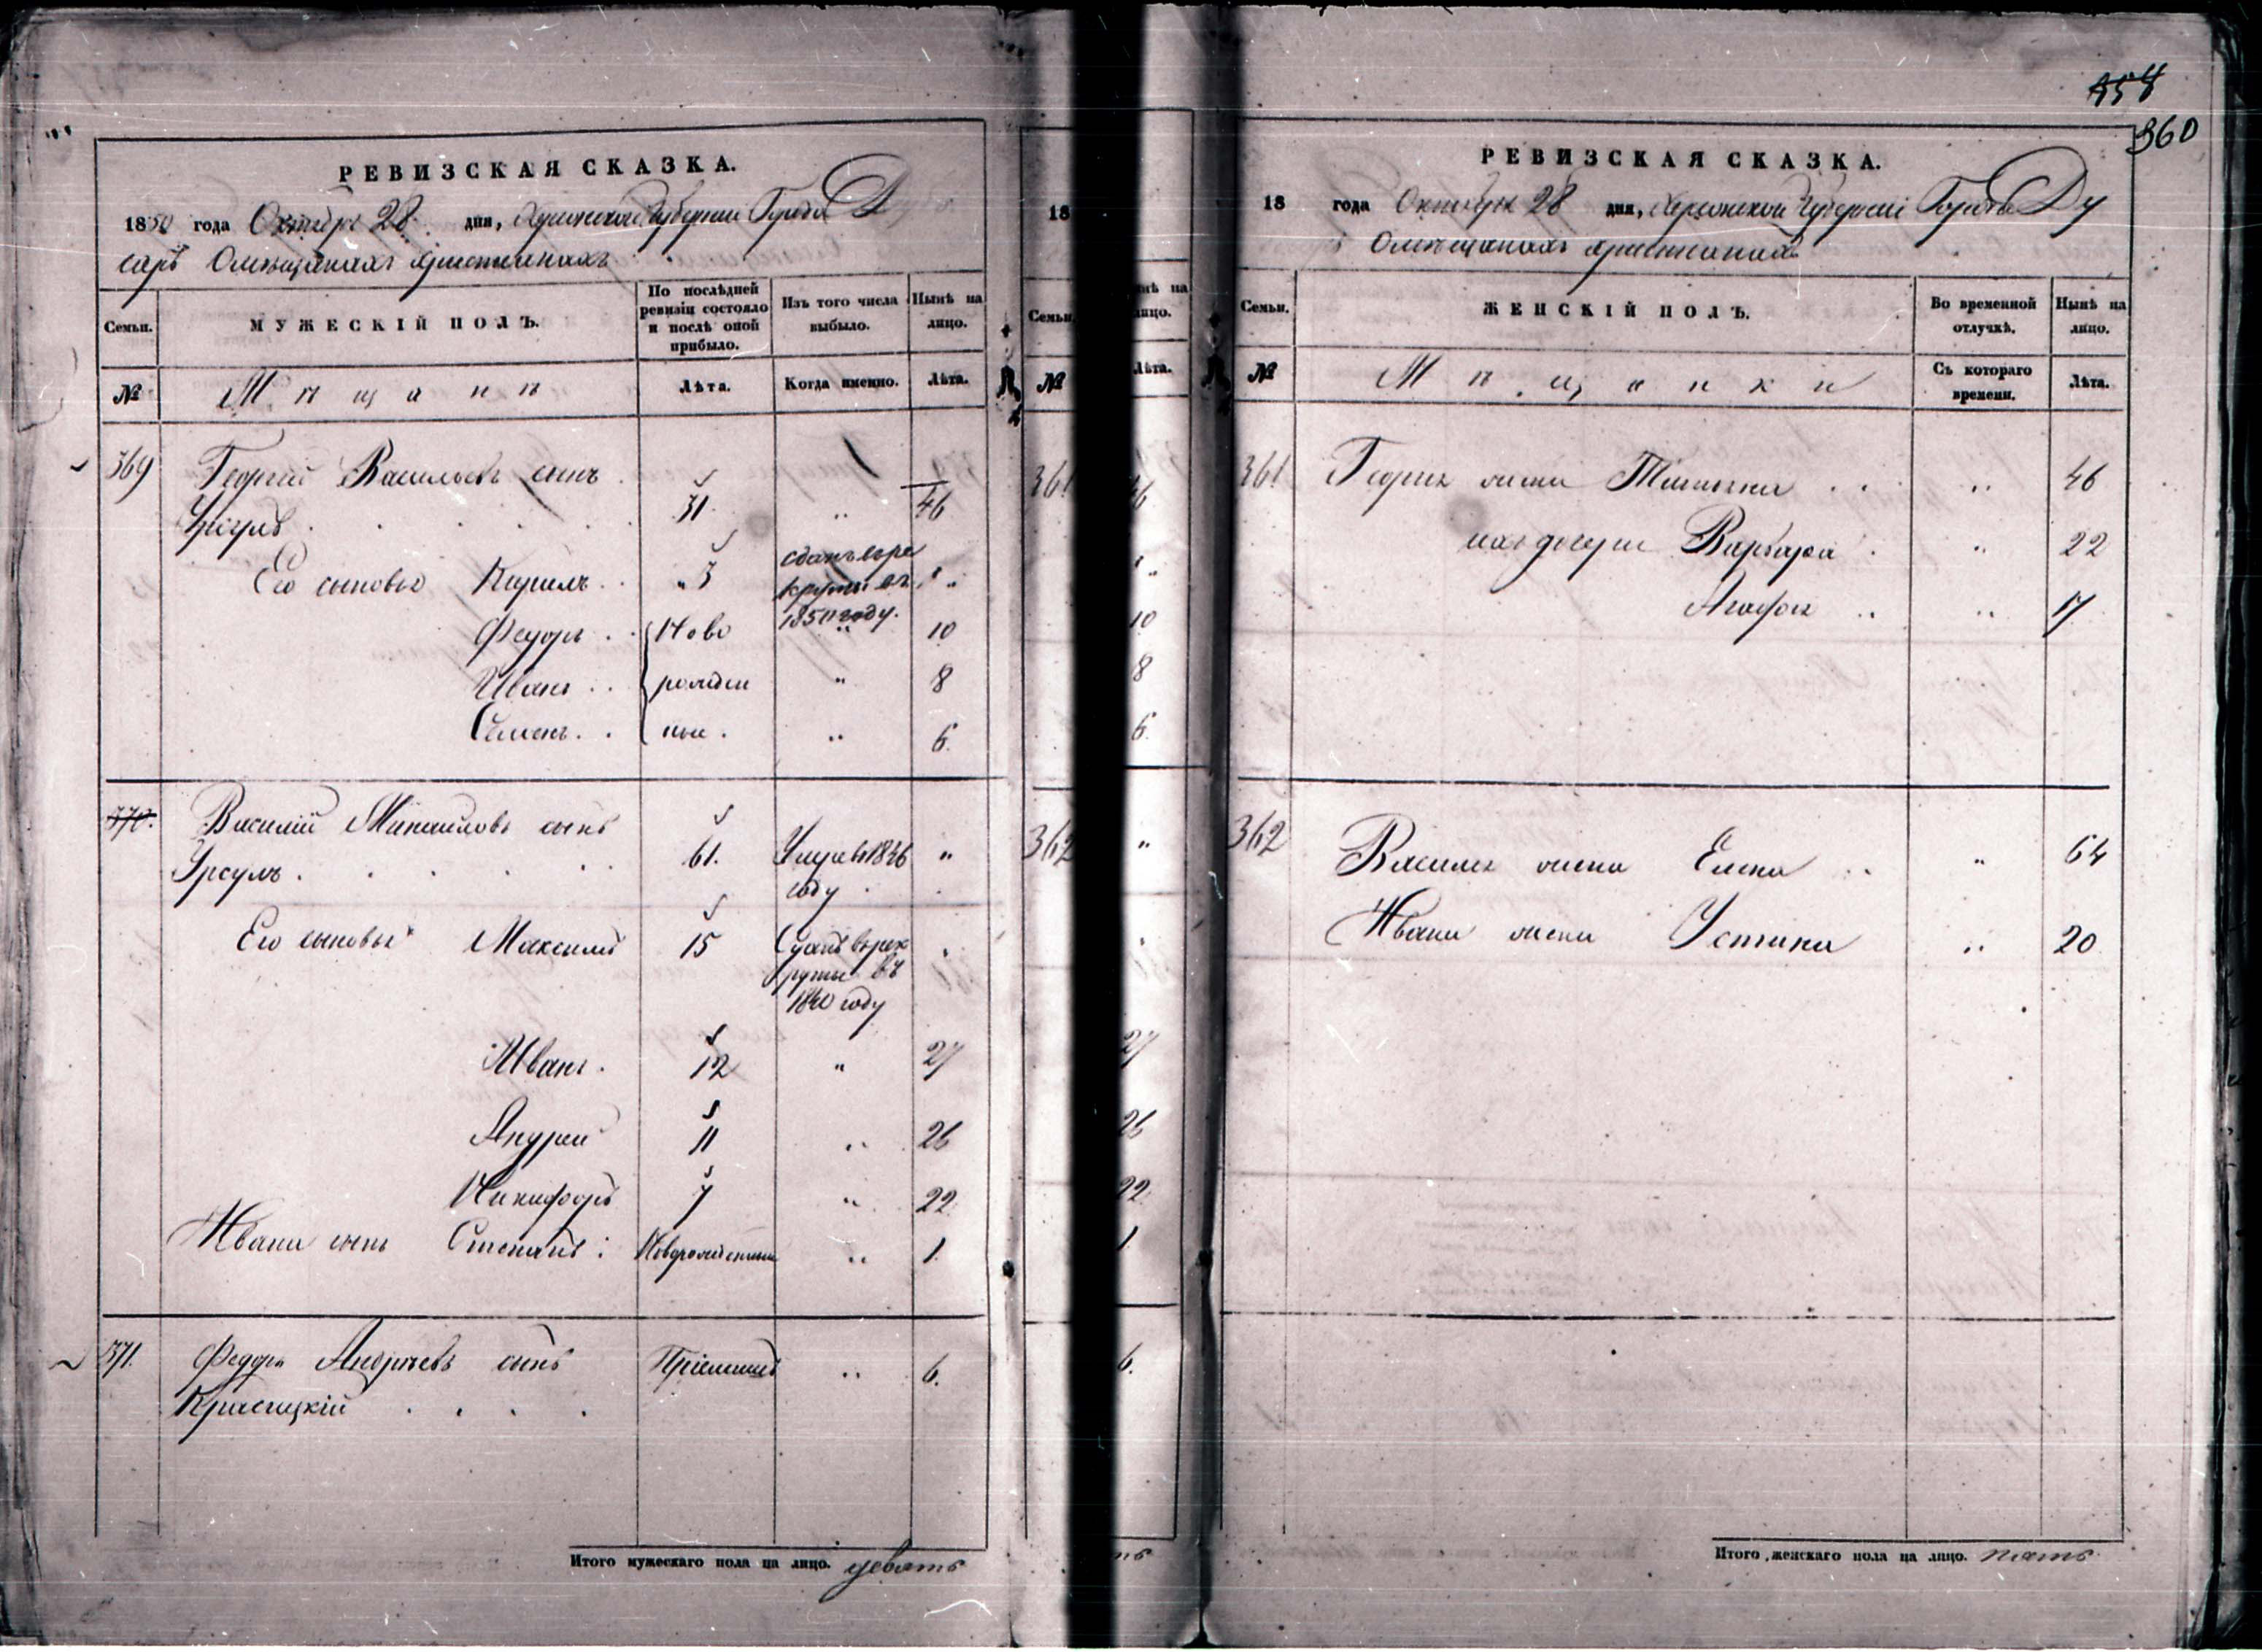 РЕВИЗСКАЯ СКАЗКА.
1850 года Октября 28 дня, Херсонской Губернии Города Ду
саръ Омѣщанахъ христианахъ
Семьи. МУЖЕСКІЙ ПОЛЪ. По послѣдней ревизіи состояло и послѣ оной прибыло. Изъ того числа выбыло. Нынѣ на лицо.
№ Мѣщане Лѣта. Когда именно. Лѣта.
369 Георгий Васильевъ сынъ
Урсулъ 31 " 46
Его сыновья Кирилъ "3 сданъ въ рекруты въ 1850 году. "
Федоръ Ново " 10
Иванъ рожден " 8
Семенъ ные. " 6.
370. Василій Михайловъ сынъ
Урсулъ 61. Умре в 1846 году "
Его сыновья Максимъ 15 Сданъ в рекруты въ 1840 году
Иванъ 12 " 27
Андрей 11 " 26
Никифоръ 7 " 22
Ивана сынъ Степанъ Новорожденный " 1.
371. Федоръ Андреевъ сынъ Пріемышъ " 6.
Красицкій
Итого мужескаго пола на лицо. девять
18
Семьи. нѣ на лицо.
№ Лѣта.
361 46
10
8
6.
362 "
27
26
22
1
6.
454
360
РЕВИЗСКАЯ СКАЗКА.
18 года Октября 28 дня, Херсонской Губерніи Города Ду
Омѣщанахъ христианахъ
Семьи. ЖЕНСКІЙ ПОЛЪ. Во временной отлучкѣ. Нынѣ на лицо.
№ Мѣщанки Съ котораго времени. Лѣта.
361 Георгия жена " 46
дочери Варвара " 22
Агафья " 17
362 Василия жена Елена " 64
Ивана жена Устина " 20
Итого женскаго пола на лицо. пять